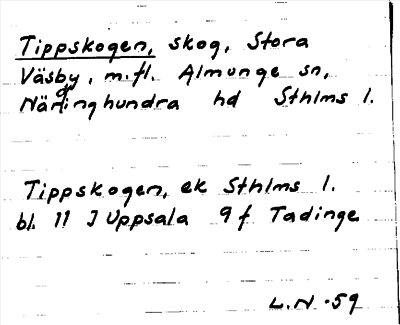 Tippskogen, skog, Stora
Väsby, m.fl. Almunge sn,
Närdinghundra hd Sthlms l.
Tippskogen, ek Sthlms l.
bl. 11 I Uppsala 9 f Tadinge
L.N -59